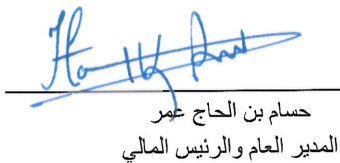 حسام بن الحاج عمر
المدير العام والرئيس المالي